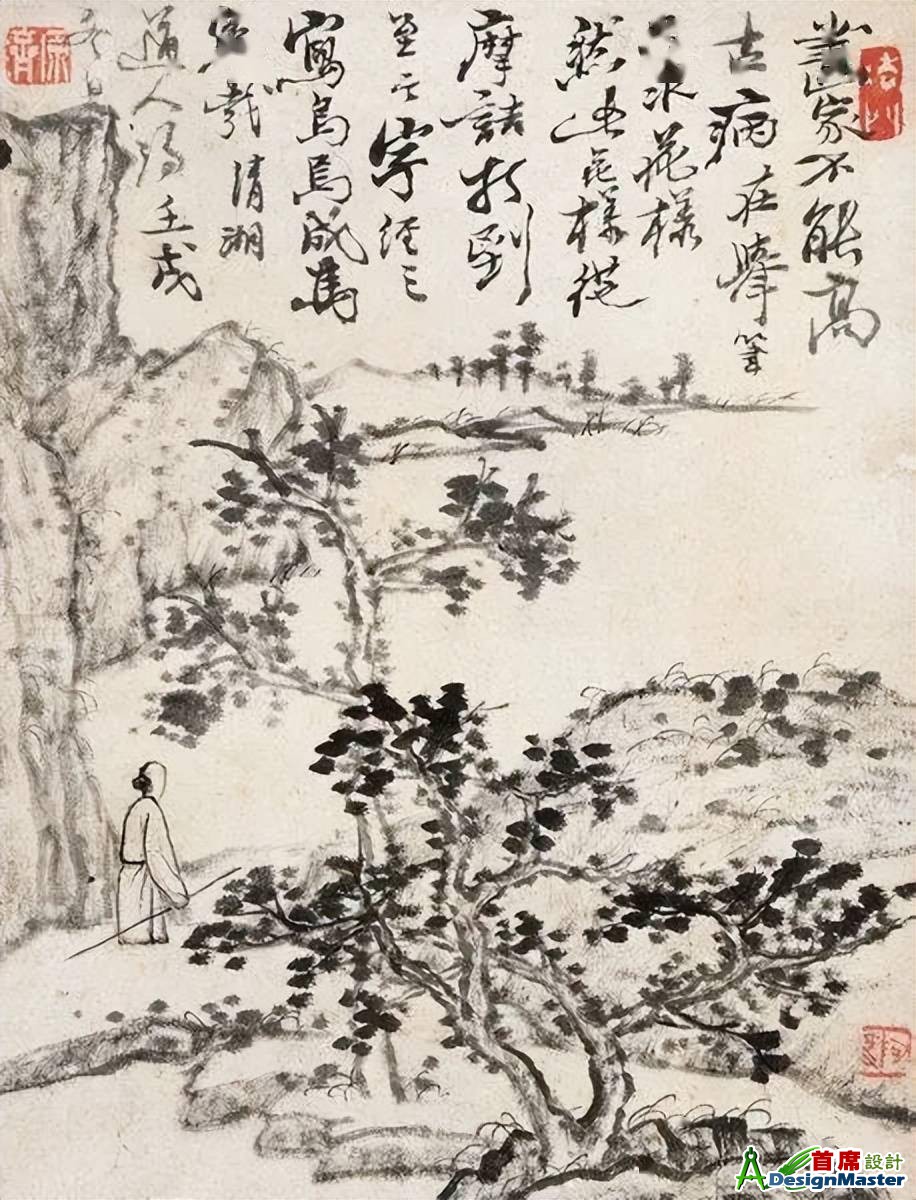 畫家不能高
古病在舉筆
只求花樣
然此花樣從
摩詰打到
至今字經三
寫烏焉成馬
冤哉清湘
道人濟壬戌
冬日
首席設計
DesignMaster